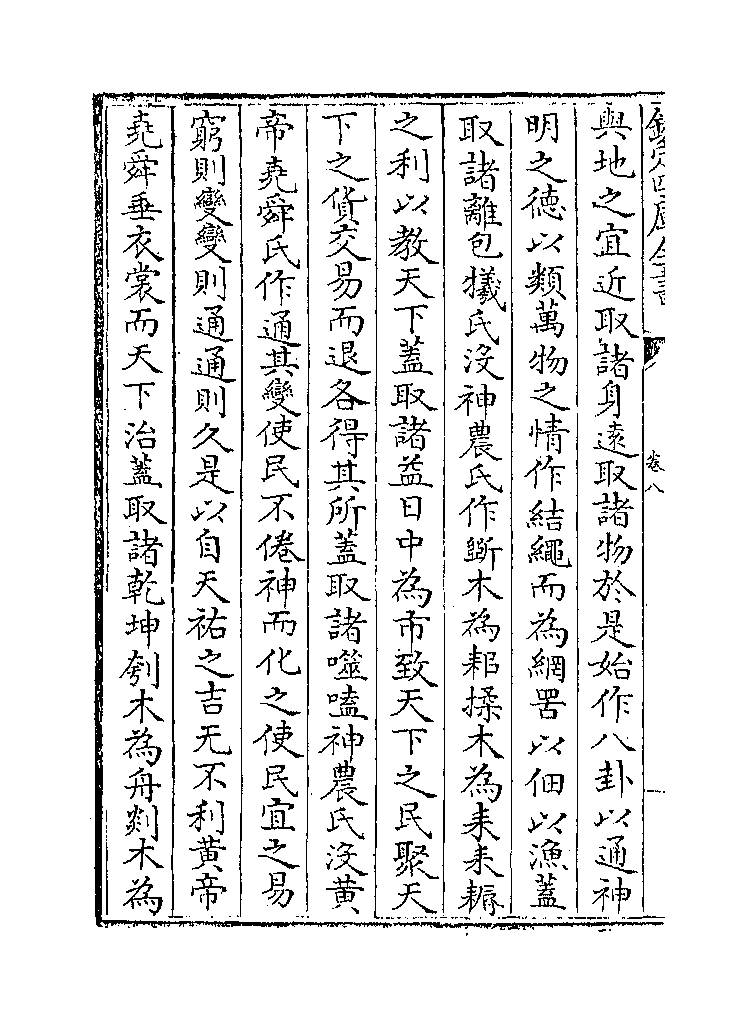 欽定四庫全書 卷八
與地之宜近取諸身遠取諸物於是始作八卦以通神
明之德以類萬物之情作結繩而為網罟以佃以漁蓋
取諸離包犧氏沒神農氏作斲木為耜揉木為耒耒耨
之利以教天下蓋取諸益日中為市致天下之民聚天
下之貨交易而退各得其所蓋取諸噬嗑神農氏沒黃
帝堯舜氏作通其變使民不倦神而化之使民宜之易
窮則變變則通通則久是以自天祐之吉无不利黃帝
堯舜垂衣裳而天下治蓋取諸乾坤刳木為舟剡木為